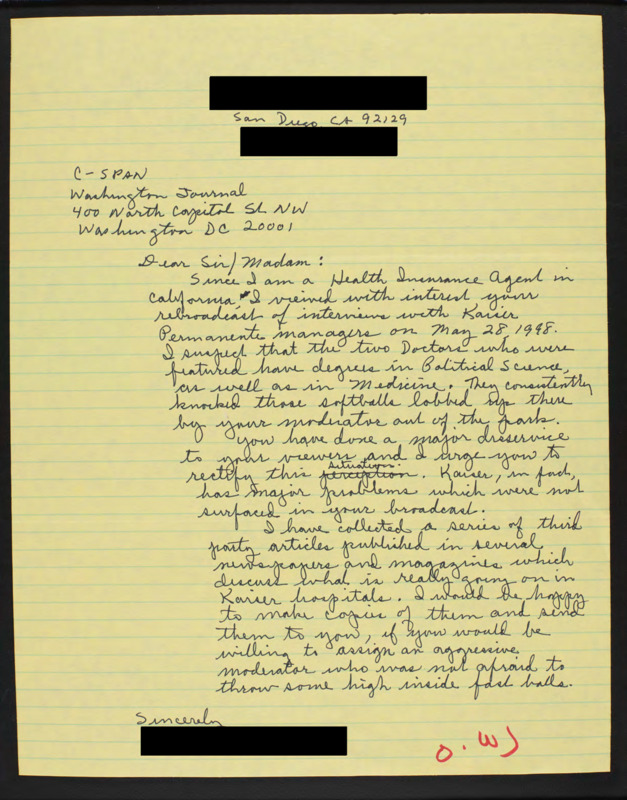 San Diego CA 92129
C-SPAN
Washington Journal
400 North Capitol St. NW
Washington DC 20001
Dear Sir/Madam:
Since I am a Health Insurance Agent in
California I viewed with interest your
rebroadcast of interviews with Kaiser
Permanente managers on May 28 1998.
I suspect that the two Doctors who were
featured have degrees in Political Science,
as well as in Medicine. They consistently
knocked those softballs lobbed up there
by your moderator out of the park.
You have done a major disservice
to your viewers and I urge you to
situation
rectify this perception. Kaiser, in fact,
has major problems which were not
surfaced in your broadcast.
I have collected a series of third
party articles published in several
newspapers and magazines which
discuss what is really going on in
Kaiser hospitals. I would be happy
to make copies of them and send
them to you, if you would be
willing to assign an aggressive
moderator who was not afraid to
throw some high inside fast balls.
Sincerely